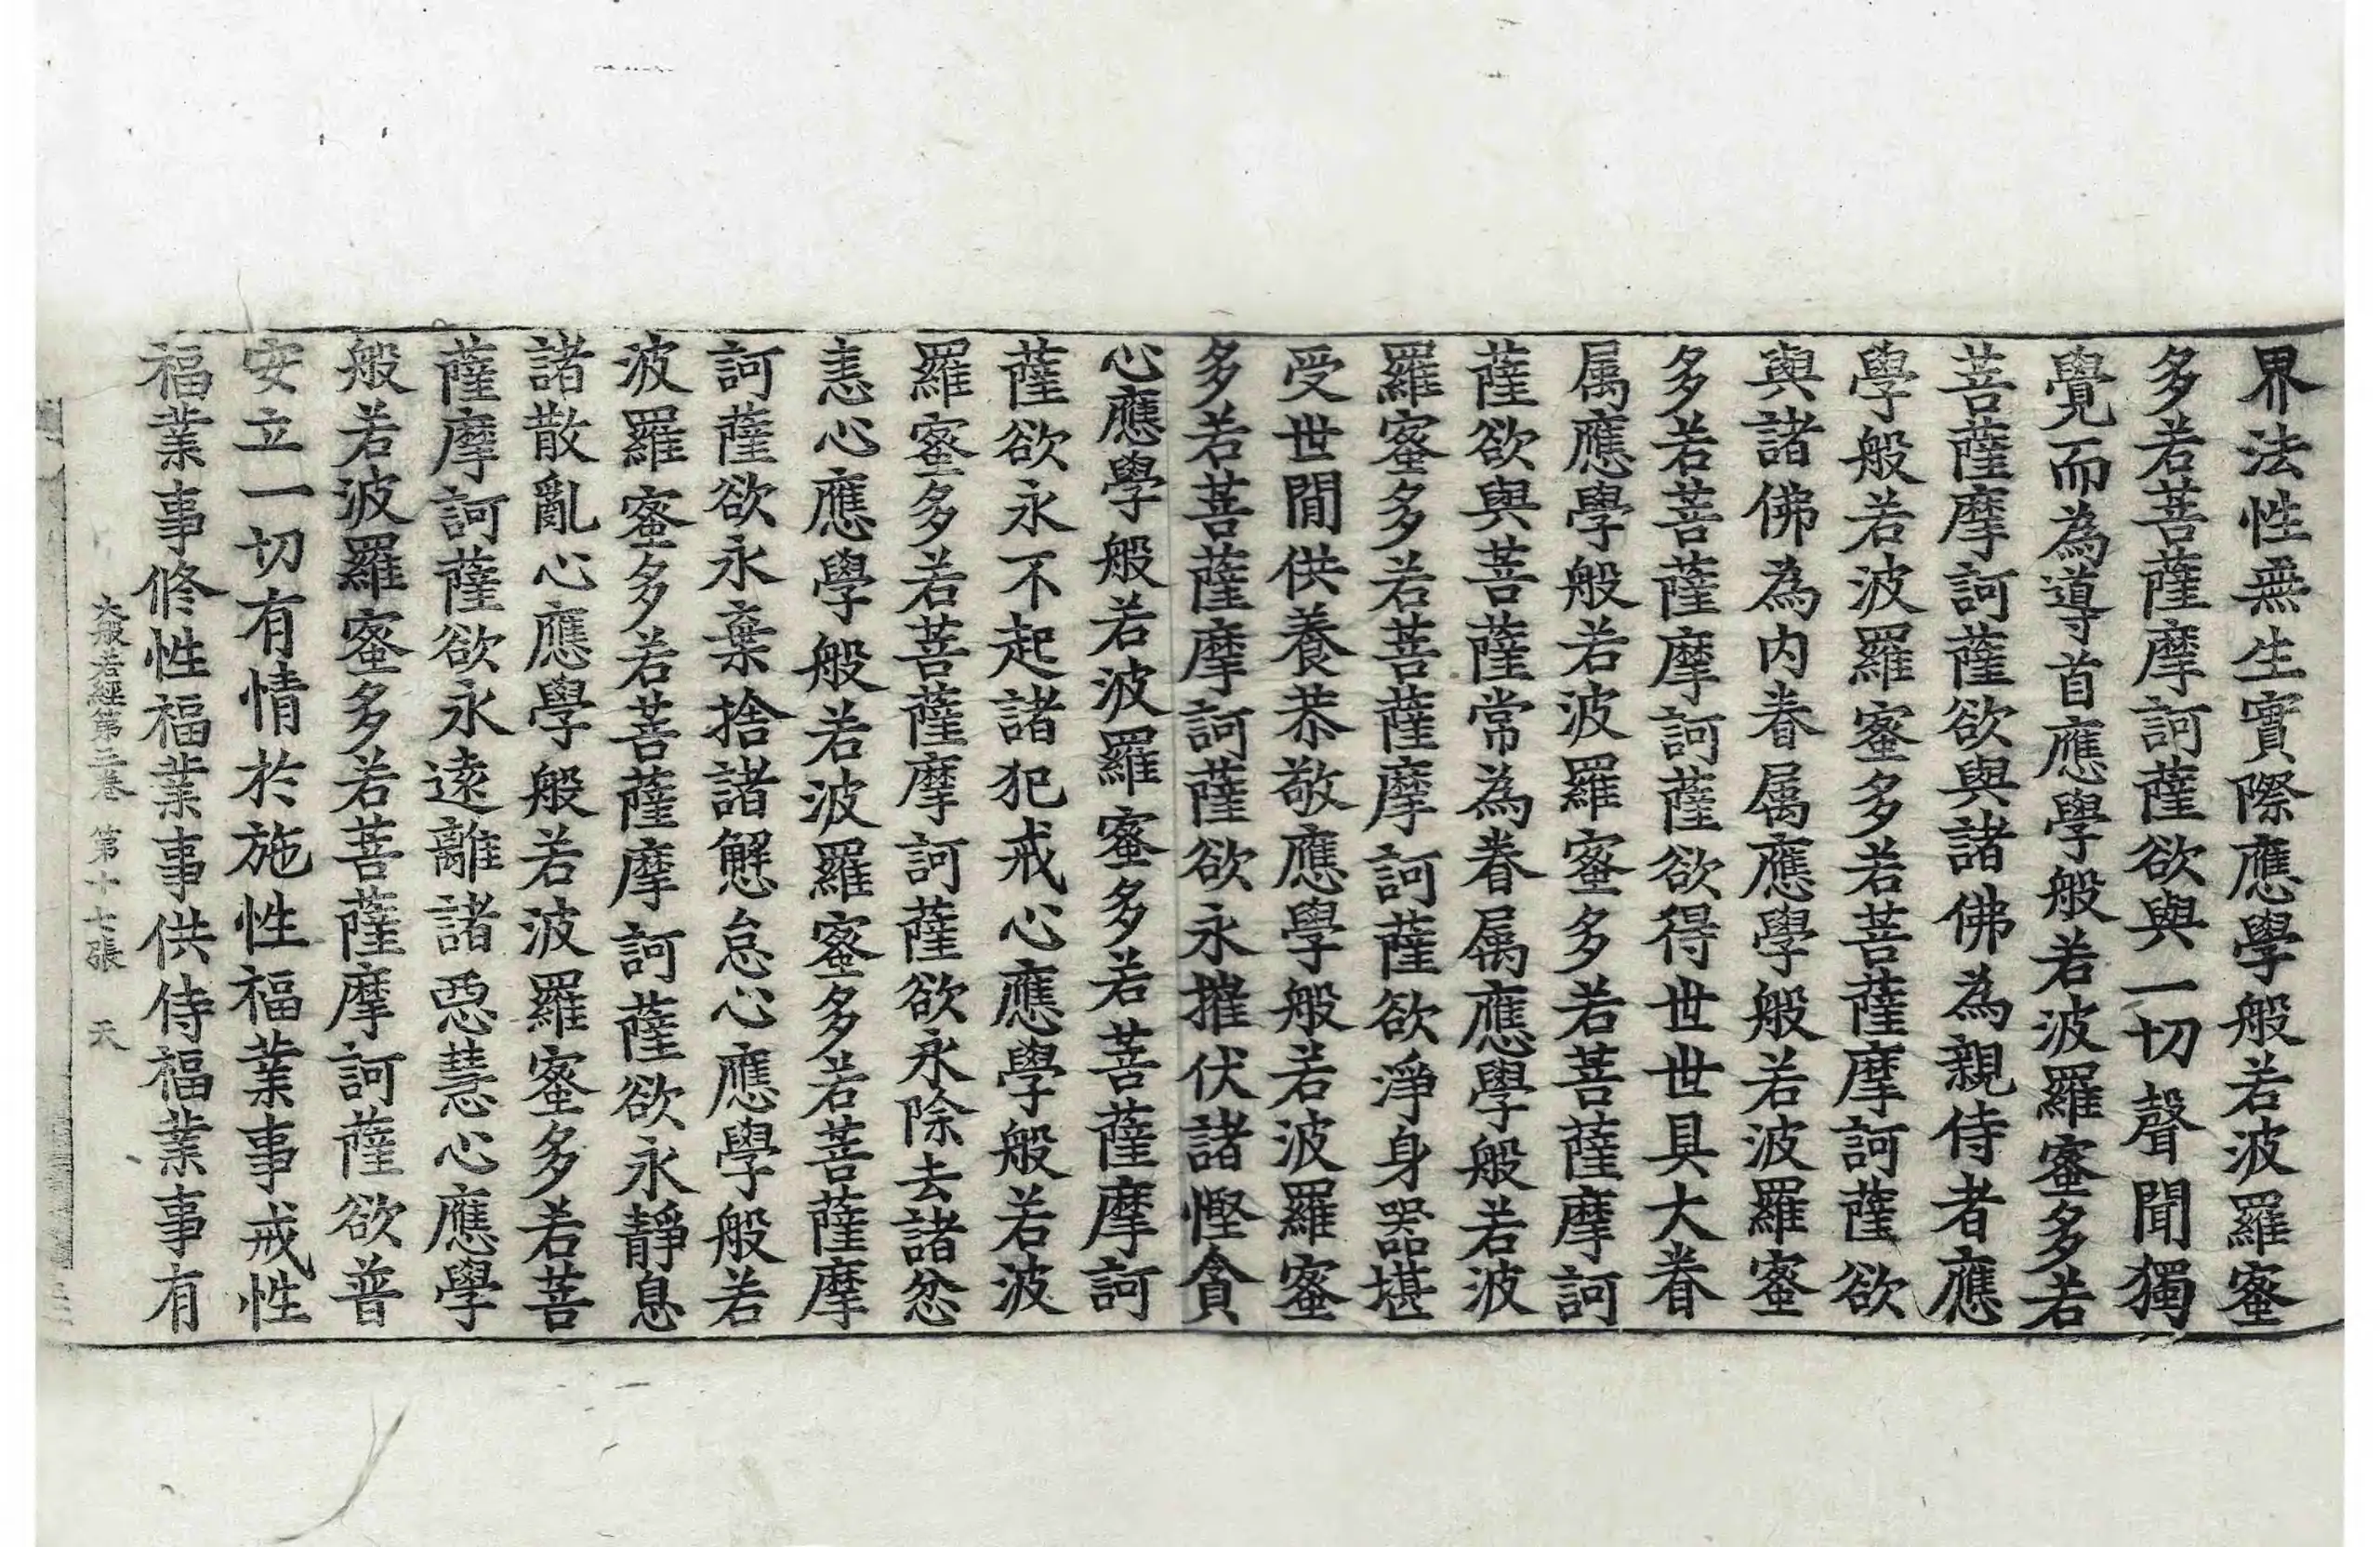 界法性無生實際應學般若波羅蜜
多若菩薩摩訶薩欲與一切聲聞獨
覺而為導首應學般若波羅蜜多若
菩薩摩訶薩欲與諸佛為親侍者應
學般若波羅蜜多若菩薩摩訶薩欲
與諸佛為内眷屬應學般若波羅蜜
多若菩薩摩訶薩欲得世世具大眷
属應學般若波羅蜜多若菩薩摩訶
薩欲與菩薩常為眷属應學般若波
羅蜜多若菩薩摩訶薩欲淨身器堪
受世間供養恭敬應學般若波羅蜜
多若菩薩摩訶薩欲永摧伏諸慳貪
心應學般若波羅蜜多若菩薩摩訶
薩欲永不起諸犯戒心應學般若波
羅蜜多若菩薩摩訶薩欲永除去諸忿
恚心應學般若波羅蜜多若菩薩摩
訶薩欲永棄捨諸懈怠心應學般若
波羅蜜多若菩薩摩訶薩欲永靜息
諸散亂心應學般若波羅蜜多若菩
薩摩訶薩欲永遠離諸惡慧心應學
般若波羅蜜多若菩薩摩訶薩欲普
安立一切有情於施性福業事戒性
福業事修性福業事供侍福業事有
大般若經第三卷 第十七張 天